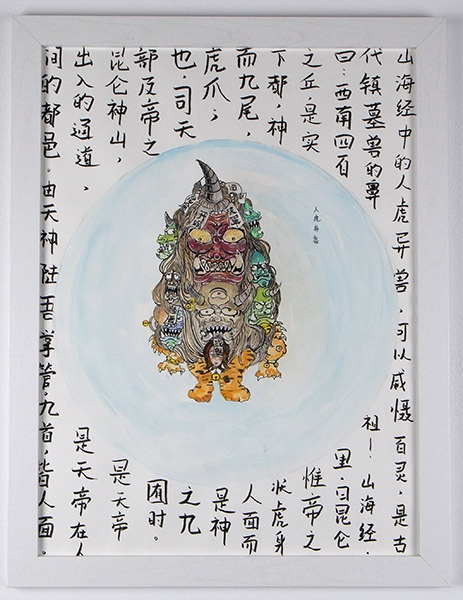 山海经中的人虎异兽，可以威慑百灵，是古
代镇墓兽的鼻祖！山海经，
曰：西南四百里，曰昆仑
之丘，是实惟帝之
下都，神状虎身
而九尾，人面而
虎爪；是神
也，司天之九
部及帝之囿时。
昆仑神山，是天帝
出入的通道，是天帝在人
间的都邑。由天神陆吾掌管，九首，皆人面，
人虎异兽